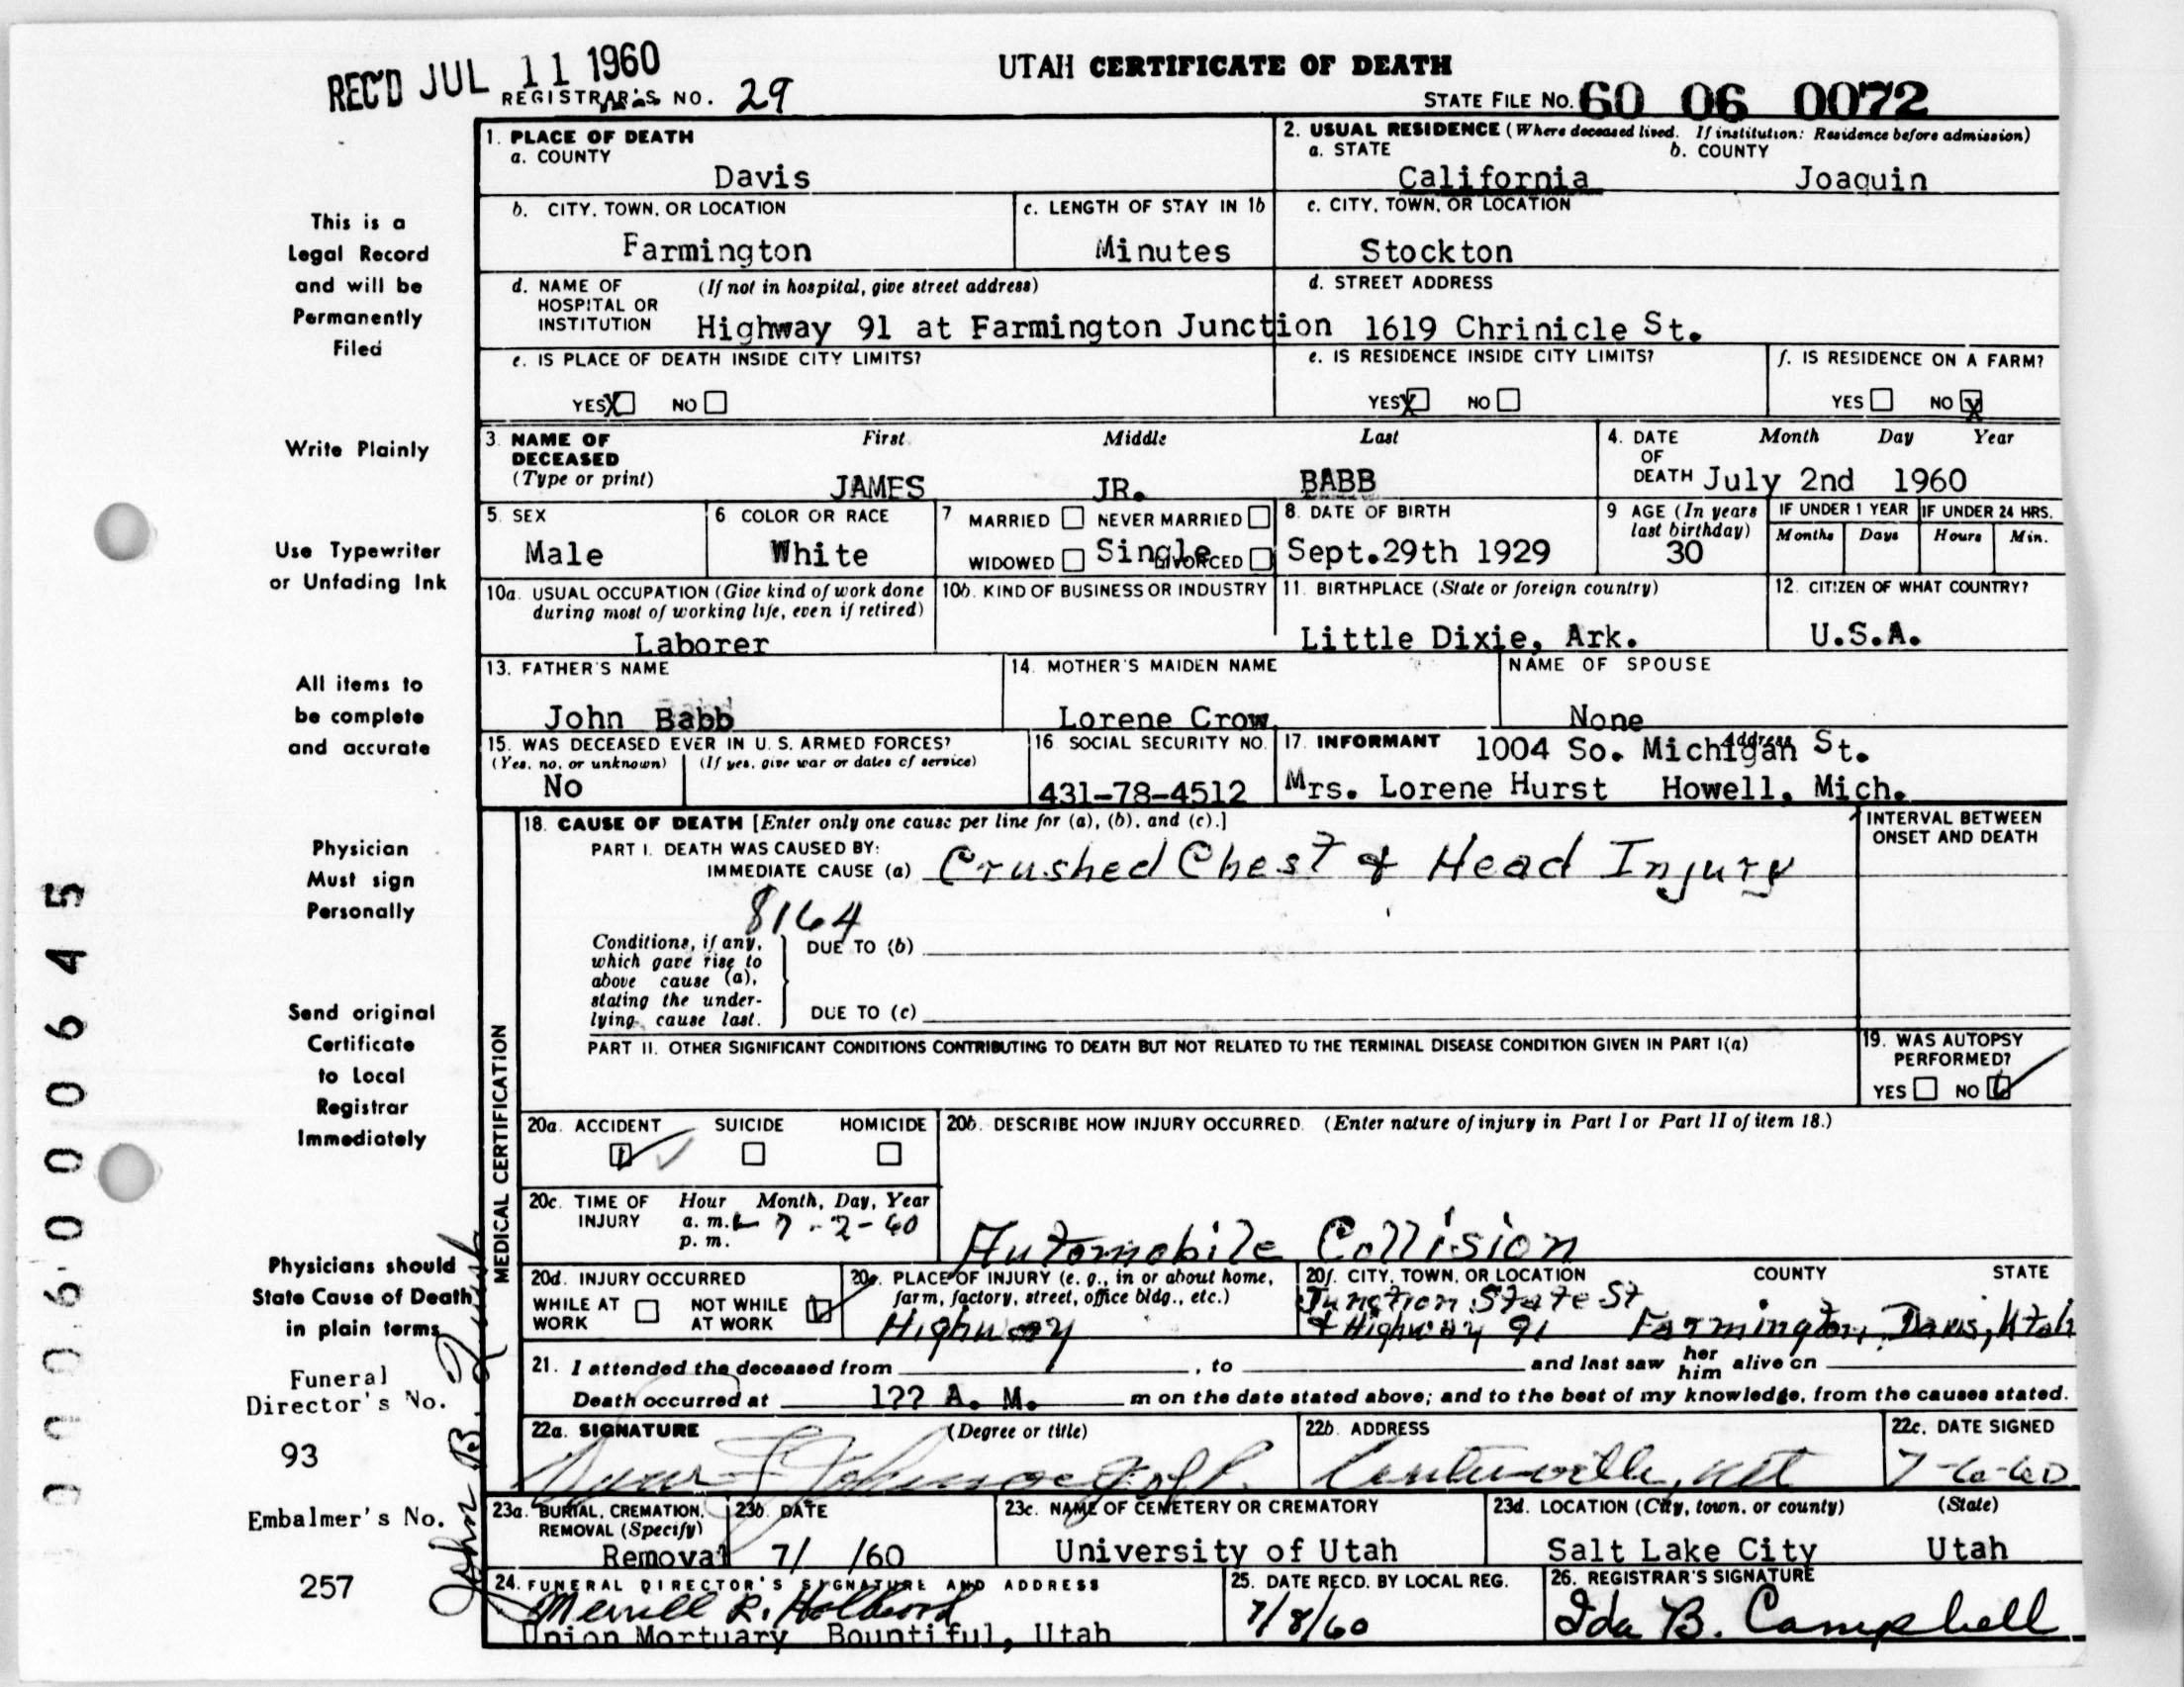 REC'D JUL 11 1960
UTAH CERTIFICATE OF DEATH
REGISTRAR'S NO. 29
STATE FILE No. 60 06 0072
1. PLACE OF DEATH
a. COUNTY
Davis
2. USUAL RESIDENCE (Where deceased lived. If institution: Residence before admission)
a. STATE b. COUNTY
California Joaquin
b. CITY, TOWN, OR LOCATION
Farmington
c. LENGTH OF STAY IN 1b
Minutes
c. CITY, TOWN, OR LOCATION
Stockton
d. NAME OF HOSPITAL OR INSTITUTION (If not in hospital, give street address)
Highway 91 at Farmington Junction
d. STREET ADDRESS
1619 Chrinicle St.
e. IS PLACE OF DEATH INSIDE CITY LIMITS?
YES X NO
e. IS RESIDENCE INSIDE CITY LIMITS?
YES X NO
f. IS RESIDENCE ON A FARM?
YES NO X
3. NAME OF DECEASED (Type or print)
First Middle Last
JAMES JR. BABB
4. DATE OF DEATH Month Day Year
July 2nd 1960
5. SEX
Male
6 COLOR OR RACE
White
7 MARRIED NEVER MARRIED
WIDOWED DIVORCED
Single
8. DATE OF BIRTH
Sept.29th 1929
9 AGE (In years last birthday)
30
IF UNDER 1 YEAR IF UNDER 24 HRS.
Months Days Hours Min.
10a. USUAL OCCUPATION (Give kind of work done during most of working life, even if retired)
Laborer
10b. KIND OF BUSINESS OR INDUSTRY
11. BIRTHPLACE (State or foreign country)
Little Dixie, Ark.
12. CITIZEN OF WHAT COUNTRY?
U.S.A.
13. FATHER'S NAME
John Babb
14. MOTHER'S MAIDEN NAME
Lorene Crow
NAME OF SPOUSE
None
15. WAS DECEASED EVER IN U. S. ARMED FORCES?
(Yes, no, or unknown) (If yes, give war or dates of service)
No
16 SOCIAL SECURITY NO.
431-78-4512
17. INFORMANT Address
1004 So. Michigan St.
Mrs. Lorene Hurst Howell, Mich.
MEDICAL CERTIFICATION
18. CAUSE OF DEATH [Enter only one cause per line for (a), (b), and (c).]
INTERVAL BETWEEN ONSET AND DEATH
PART I. DEATH WAS CAUSED BY:
IMMEDIATE CAUSE (a) Crushed Chest & Head Injury
8164
Conditions, if any, which gave rise to above cause (a), stating the underlying cause last.
DUE TO (b)
DUE TO (c)
PART II. OTHER SIGNIFICANT CONDITIONS CONTRIBUTING TO DEATH BUT NOT RELATED TO THE TERMINAL DISEASE CONDITION GIVEN IN PART I(a)
19. WAS AUTOPSY PERFORMED?
YES NO
20a. ACCIDENT SUICIDE HOMICIDE
20b. DESCRIBE HOW INJURY OCCURRED. (Enter nature of injury in Part I or Part II of item 18.)
Automobile Collision
20c. TIME OF INJURY Hour Month, Day, Year
a. m. 7-2-60
p. m.
20d. INJURY OCCURRED
WHILE AT WORK NOT WHILE AT WORK
20e. PLACE OF INJURY (e. g., in or about home, farm, factory, street, office bldg., etc.)
Highway
20f. CITY, TOWN, OR LOCATION COUNTY STATE
Junction State St
& Highway 91 Farmington, Davis, Utah
21. I attended the deceased from , to and last saw her him alive on
Death occurred at 1?? A. M. m on the date stated above; and to the best of my knowledge, from the causes stated.
22a. SIGNATURE (Degree or title)
22b. ADDRESS
Centerville, Ut
22c. DATE SIGNED
7-6-60
23a. BURIAL, CREMATION, REMOVAL (Specify)
Removal
23b. DATE
7/ /60
23c. NAME OF CEMETERY OR CREMATORY
University of Utah
23d. LOCATION (City, town, or county) (State)
Salt Lake City Utah
24. FUNERAL DIRECTOR'S SIGNATURE AND ADDRESS
Merrill R. Holbrook
Union Mortuary Bountiful, Utah
25. DATE RECD. BY LOCAL REG.
7/8/60
26. REGISTRAR'S SIGNATURE
Ida B. Campbell
This is a
Legal Record
and will be
Permanently
Filed
Write Plainly
Use Typewriter
or Unfading Ink
All items to
be complete
and accurate
Physician
Must sign
Personally
Send original
Certificate
to Local
Registrar
Immediately
Physicians should
State Cause of Death
in plain terms
Funeral
Director's No.
93
Embalmer's No.
257
John B.
000600645